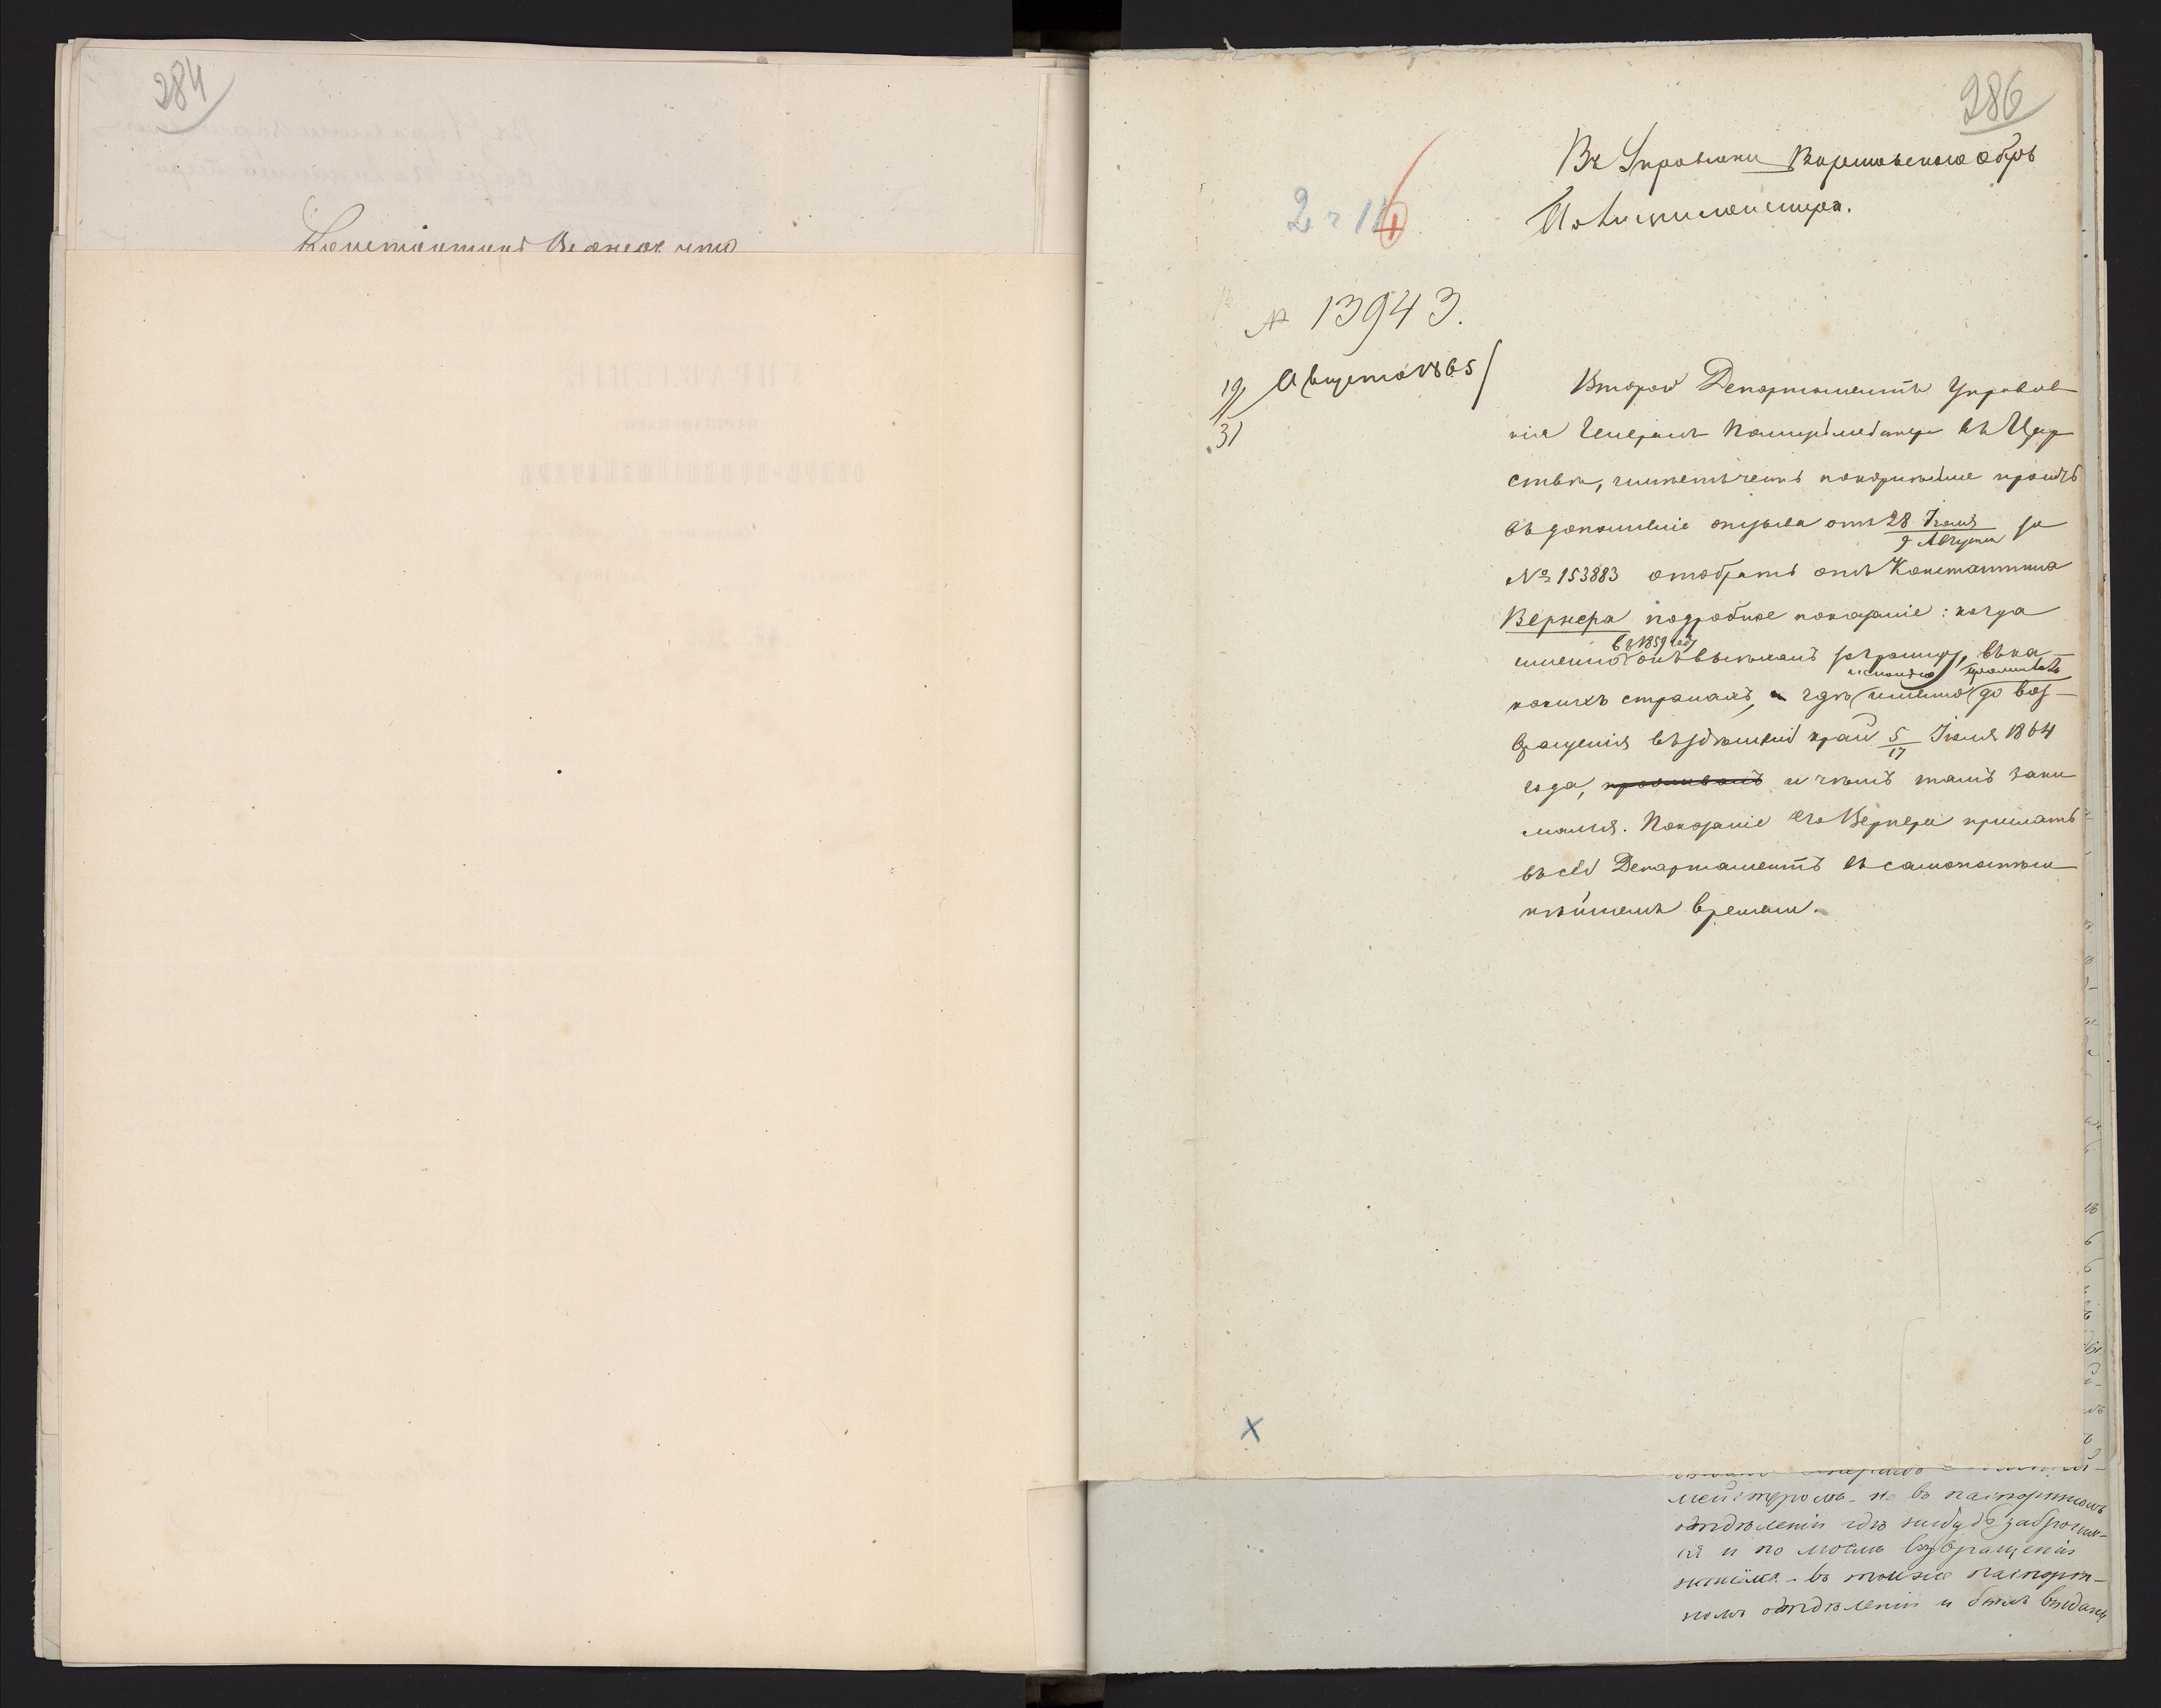 284
Константинъ Вернеръ что
286
Въ Управленіе Варшавскаго Оберъ
Полиціймейстера.
2 ч 114
№ 13943.
19/31 Августа 1865
Второй Департаментъ Управле-
нія Генералъ Полицімейстера въ Цар
ствѣ, имѣетъ честь покорнѣйше просить
въ дополненіе отзыва отъ 28 Іюля / 9 Августа за
№ 153883 отобрать отъ Константина
Вернера подробное показаніе: когда
въ 1859 году
именно онъ выѣхалъ заграницу, въ ка-
проживалъ
кихъ странахъ, гдѣ именно до воз-
вращенія въ здѣшній край 5/17 Іюля 1864
года, проживалъ и чѣмъ тамъ зани
мался. Показаніе его Вернера прислать
въ сей Департаментъ въ самопоспѣш
нѣйшемъ времени.
мейстеромъ - но въ паспортномъ
отдѣленіи гдѣ нибудь заброшен-
ся и по моемъ возвращеніи
- въ томже паспорт-
номъ отдѣленіи и былъ выданъ